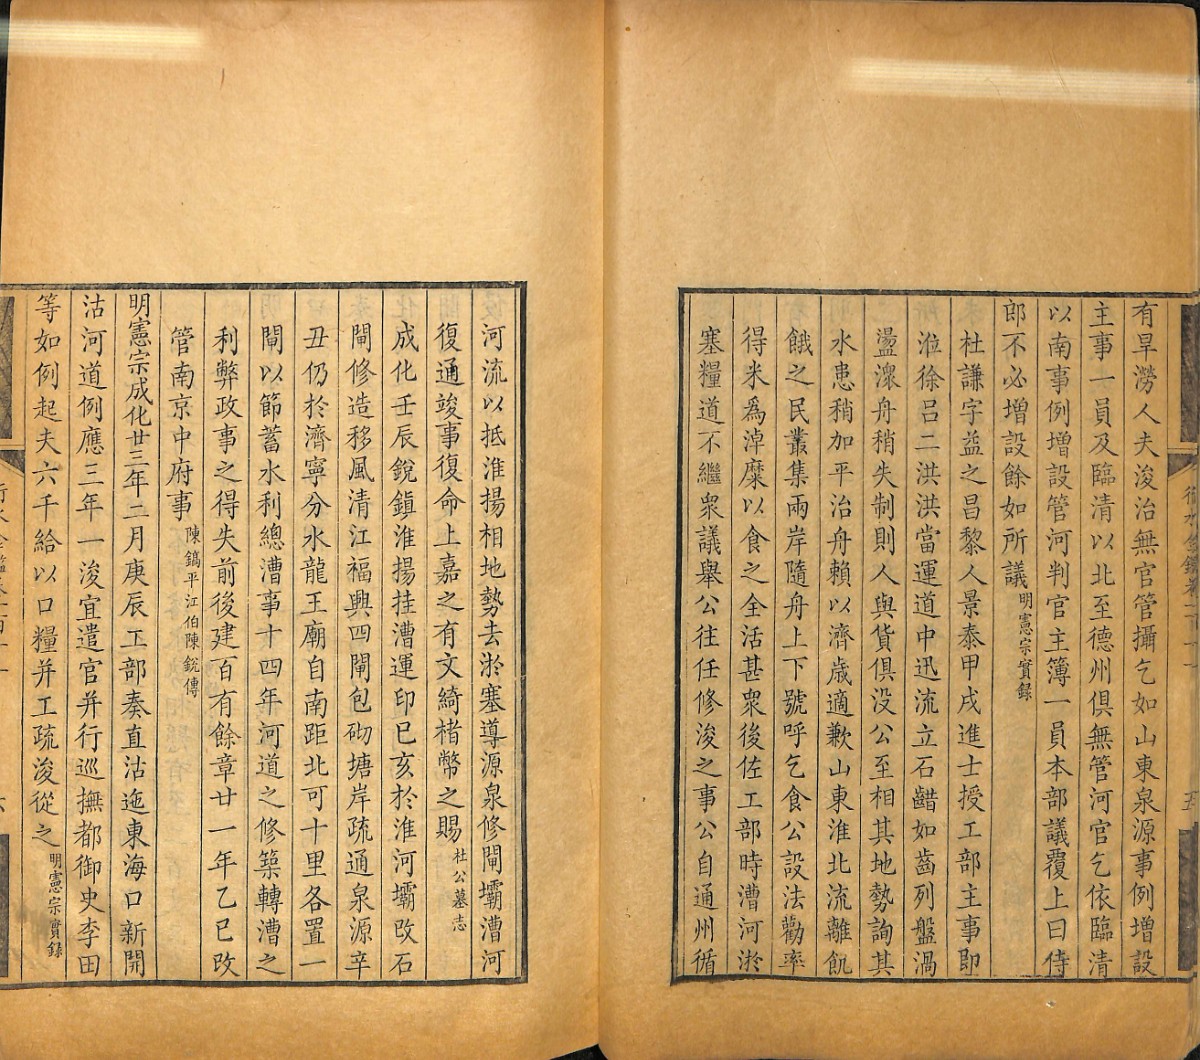 有旱澇人夫浚治無官管攝乞如山東泉源事例增設
主事一員及臨清以北至德州俱無管河官乞依臨清
以南事例增設管河判官主簿一員本部議覆上曰侍
郎不必增設餘如所議明憲宗實錄
杜謙字益之昌黎人景泰甲戌進士授工部主事即
涖徐呂二洪洪當運道中迅流立石齰如齒列盤渦
盪潈舟稍失制則人與貨俱没公至相其地勢詢其
水患稍加平治舟賴以濟歲適歉山東淮北流離飢
餓之民叢集兩岸隨舟上下號呼乞食公設法勸率
得米爲淖糜以食之全活甚衆後佐工部時漕河淤
塞糧道不繼衆議舉公往任修浚之事公自通州循
河流以抵淮揚相地勢去淤塞導源泉修閘壩漕河
復通竣事復命上嘉之有文綺楮幣之賜杜公墓志
成化壬辰銳鎮淮揚挂漕運印已亥於淮河壩改石
閘修造移風清江福興四閘包砌塘岸疏通泉源辛
丑仍於濟寧分水龍王廟自南距北可十里各置一
閘以節蓄水利總漕事十四年河道之修築轉漕之
利弊政事之得失前後建百有餘章廿一年乙巳改
管南京中府事陳鎬平江伯陳銳傳
明憲宗成化廿三年二月庚辰工部奏直沽迤東海口新開
沽河道例應三年一浚宜遣官并行巡撫都御史李田
等如例起夫六千給以口糧并工疏浚從之明憲宗實錄